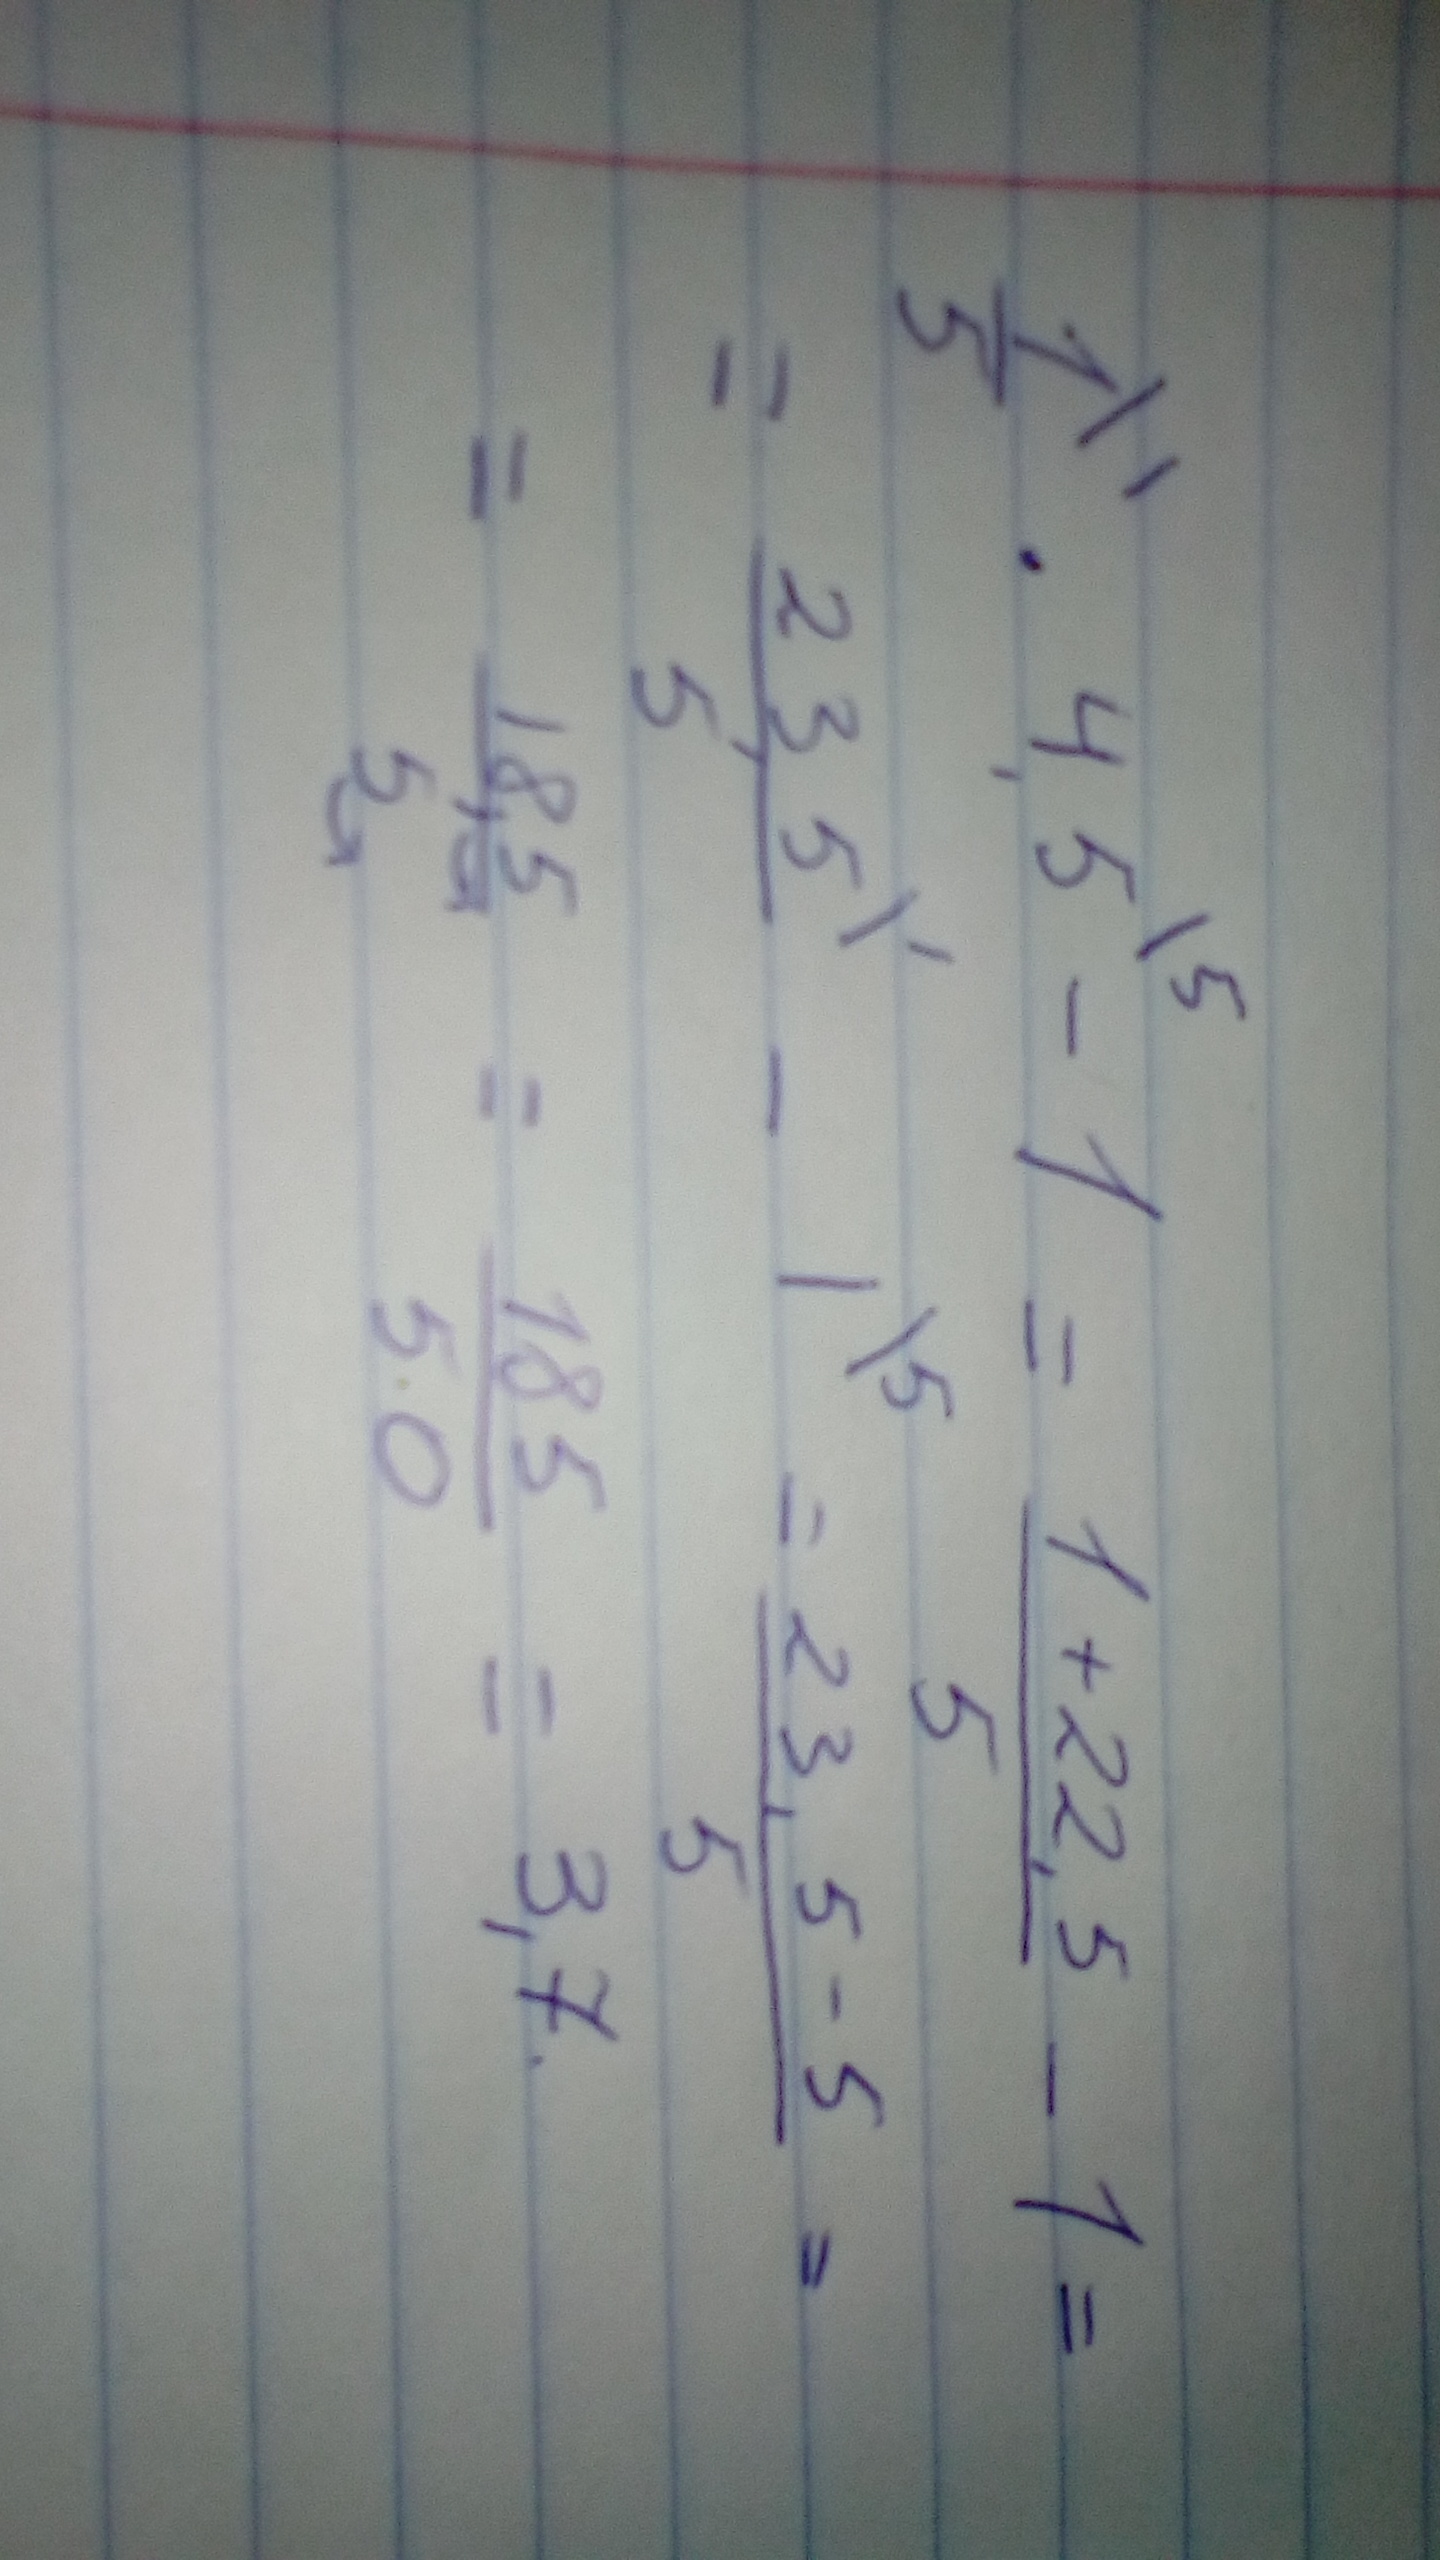 1/5\1 · 4,5\5 - 1 = (1+22,5)/5 - 1 =
= 23,5/5\1 - 1\5 = (23,5-5)/5 =
= 18,5/5 = 185/50 = 3,7.